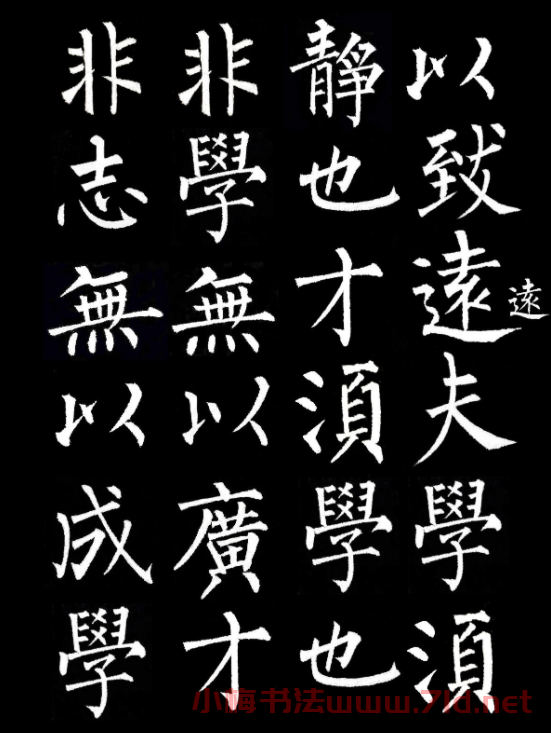 以致遠夫學湏
遠
靜也才湏學也
非學無以廣才
非志無以成學
小梅书法www.7ld.net